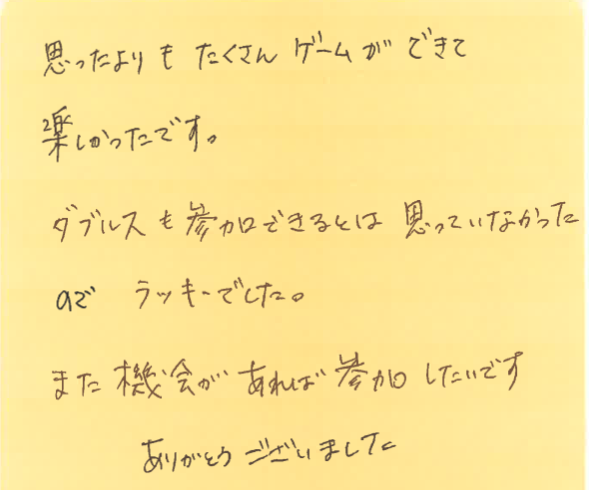 思ったよりも たくさん ゲームが できて
楽しかったです。
ダブルスも参加できるとは 思っていなかった
ので ラッキーでした。
また機会が あれば 参加 したいです
ありがとう ございました